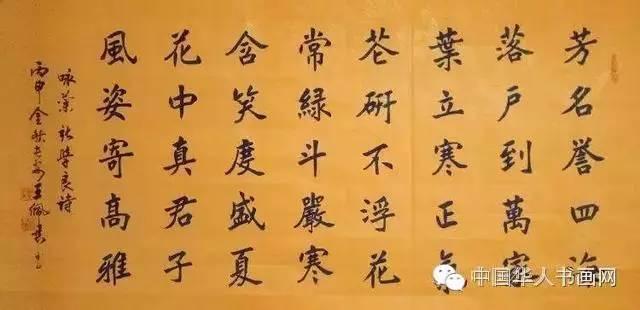 芳名譽四海
落戶到萬家
葉立寒正氣
芲研不浮花
常緑斗嚴寒
含笑度盛夏
花中真君子
風姿寄高雅
咏蘭 張學良詩
丙申金秋
中国华人书画网